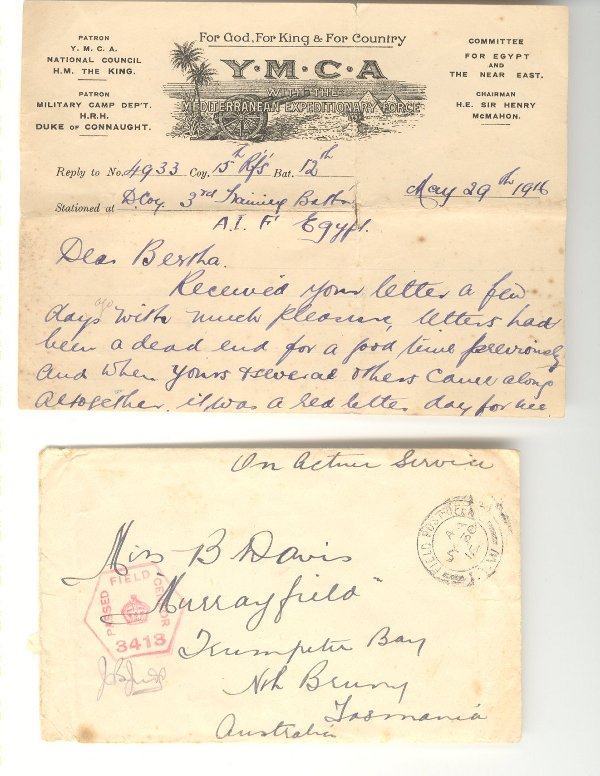 For God, For King & For Country
PATRON
Y. M. C. A.
NATIONAL COUNCIL
H.M. THE KING.
PATRON
MILITARY CAMP DEP'T.
H.R.H.
DUKE OF CONNAUGHT.
Y·M·C·A
WITH THE
MEDITERRANEAN EXPEDITIONARY FORCE
COMMITTEE
FOR EGYPT
AND
THE NEAR EAST.
CHAIRMAN
H.E. SIR HENRY
McMAHON.
Reply to No. 4933 Coy. 15th Rfs Bat. 12th
May 29th 1916
Stationed at D Coy 3rd Training Battn
A. I. F. Egypt.
Dear Bertha.
Received your letter a few
days ago with much pleasure, letters had
been a dead end for a good time previously
and when yours & several others came along
altogether, it was a red letter day for me.
On Active Service
FIELD POST OFFICE
Miss B Davis
"Murrayfield"
Trumpeter Bay
Nth Bruny
Tasmania
Australia
PASSED FIELD CENSOR
3413